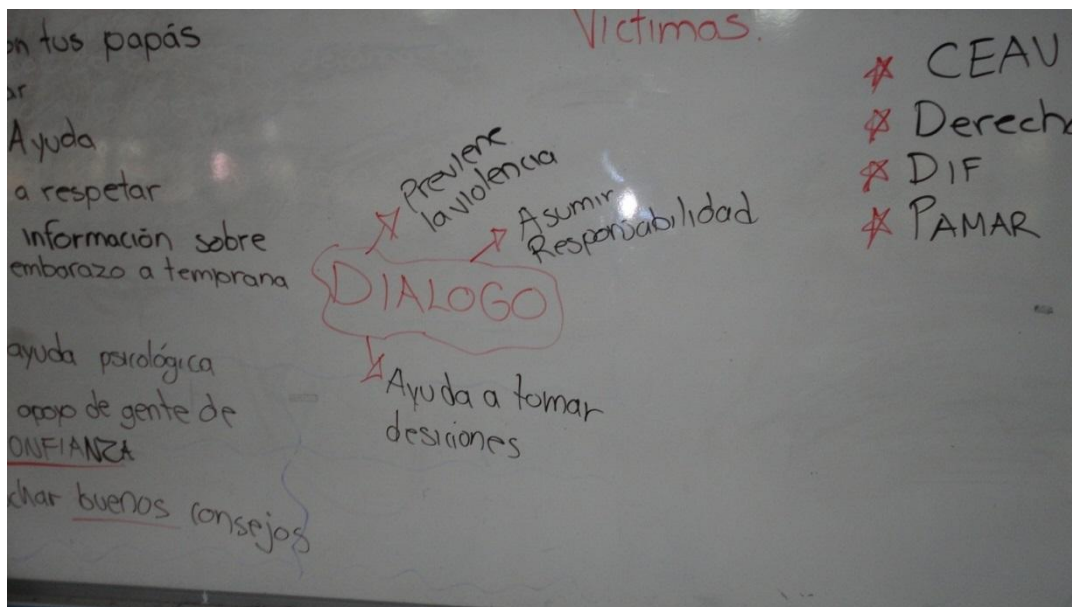 on tus papás
ar
Ayuda
a respetar
información sobre
embarazo a temprana
ayuda psicológica
apoyo de gente de
ONFIANZA
char buenos consejos
Victimas.
Previene
la violencia
Asumir
Responsabilidad
DIALOGO
Ayuda a tomar
desiciones
CEAV
Derecho
DIF
PAMAR